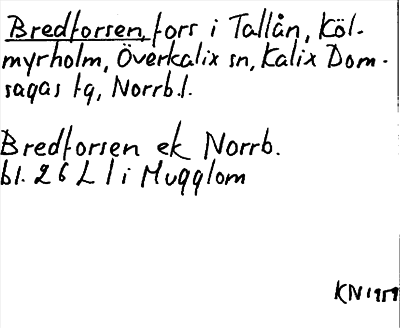 Bredforsen, fors i Tallån, Köl-
myrholm, Överkalix sn, Kalix Dom-
sagas tg, Norrb.l.
Bredforsen ek Norrb.
bl. 26 L I i Mugglom
KN 1959